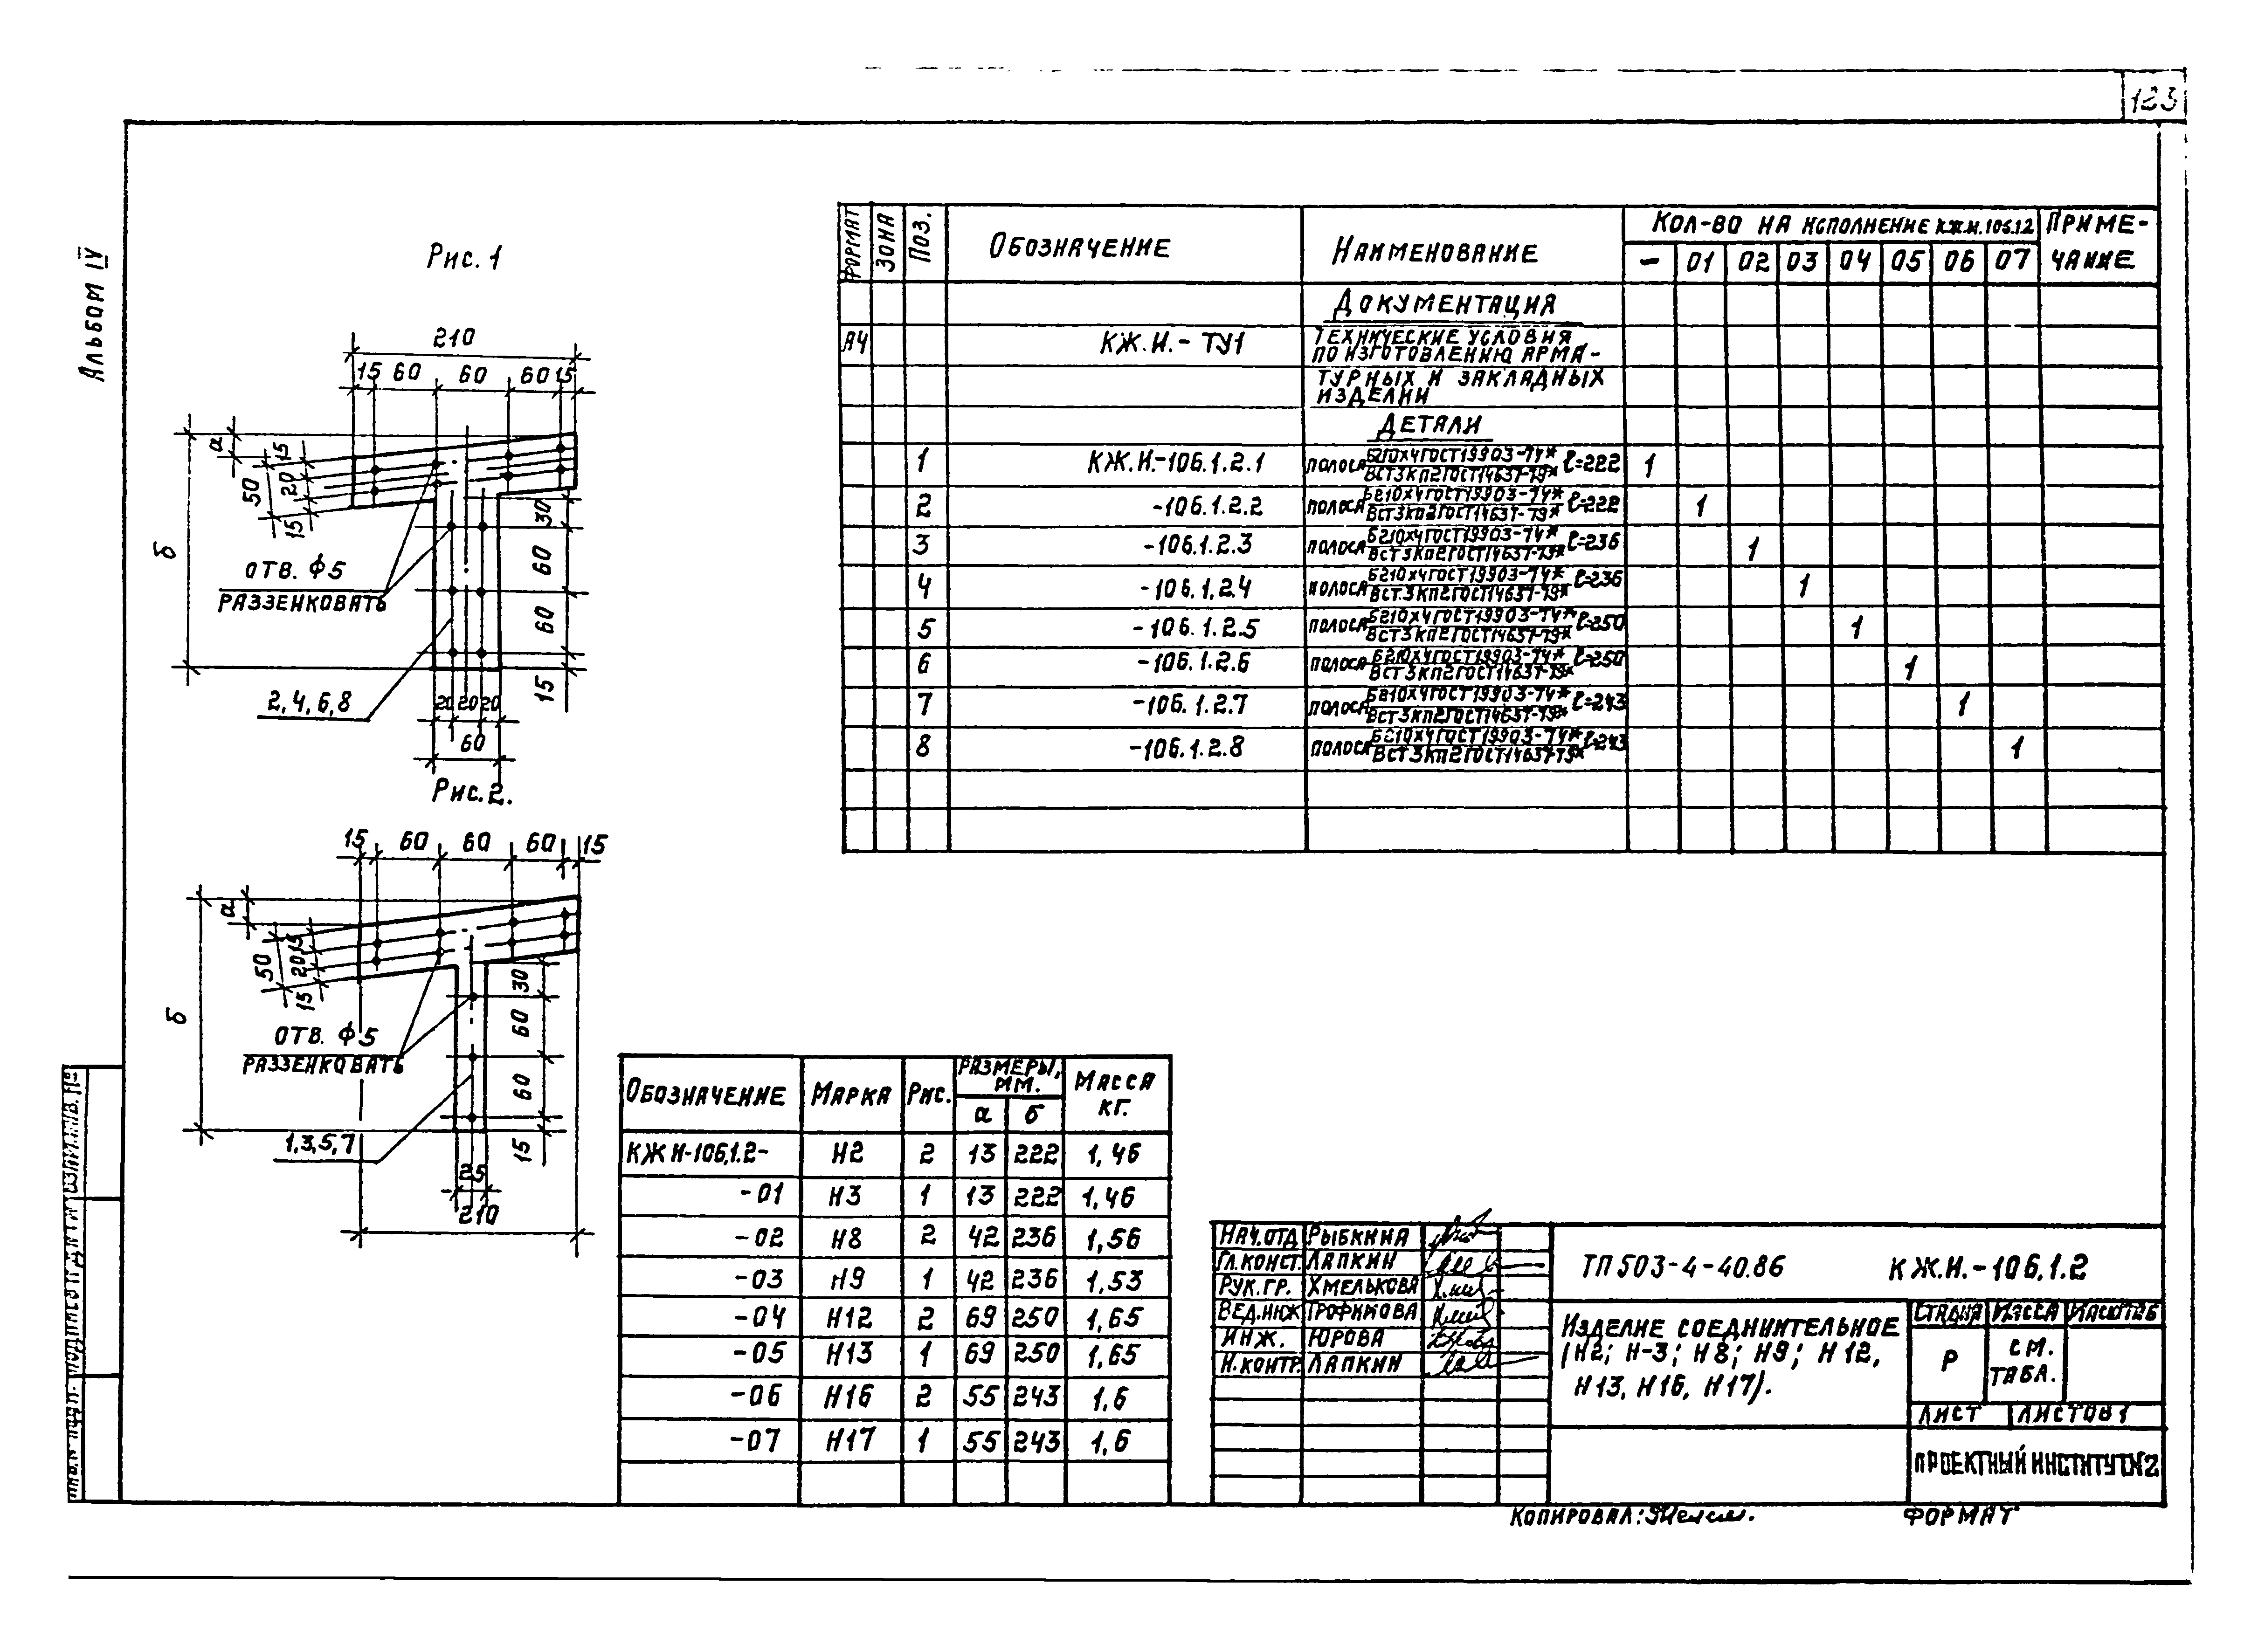 123
Альбом IV
Рис. 1
210
15 60 60 60 15
а
б
15
20
50
15
30
60
60
15
отв. ф5
раззенковать
2, 4, 6, 8
20 20 20
60
Рис. 2.
15 60 60 60 15
а
б
15
20
50
15
30
60
60
15
отв. ф5
раззенковать
1, 3, 5, 7
25
210
Формат Зона Поз. Обозначение Наименование Кол-во на исполнение КЖ.И.106.1.2 Примечание
– 01 02 03 04 05 06 07
Документация
А4 КЖ.И.- ТУ1 Технические условия
по изготовлению арма-
турных и закладных
изделий
Детали
1 КЖ.И.-106.1.2.1 полоса Б210х4ГОСТ19903-74* ВСТ3кп2ГОСТ14637-79* ℓ=222 1
2 -106.1.2.2 полоса Б210х4ГОСТ19903-74* ВСТ3кп2ГОСТ14637-79* ℓ=222 1
3 -106.1.2.3 полоса Б210х4ГОСТ19903-74* ВСТ3кп2ГОСТ14637-79* ℓ=236 1
4 -106.1.2.4 полоса Б210х4ГОСТ19903-74* ВСТ3кп2ГОСТ14637-79* ℓ=236 1
5 -106.1.2.5 полоса Б210х4ГОСТ19903-74* ВСТ3кп2ГОСТ14637-79* ℓ=250 1
6 -106.1.2.6 полоса Б210х4ГОСТ19903-74* ВСТ3кп2ГОСТ14637-79* ℓ=250 1
7 -106.1.2.7 полоса Б210х4ГОСТ19903-74* ВСТ3кп2ГОСТ14637-79* ℓ=243 1
8 -106.1.2.8 полоса Б210х4ГОСТ19903-74* ВСТ3кп2ГОСТ14637-79* ℓ=243 1
Обозначение Марка Рис. Размеры, мм. Масса кг.
а б
КЖ И-106.1.2- Н2 2 13 222 1,46
-01 Н3 1 13 222 1,46
-02 Н8 2 42 236 1,56
-03 Н9 1 42 236 1,53
-04 Н12 2 69 250 1,65
-05 Н13 1 69 250 1,65
-06 Н16 2 55 243 1,6
-07 Н17 1 55 243 1,6
Нач.отд Рыбкина
Гл.конст. Лапкин
Рук.гр. Хмелькова
Вед.инж Трофимова
Инж. Юрова
Н.контр. Лапкин
ТП 503-4-40.86 КЖ.И.-106.1.2
Изделие соединительное
(Н2; Н-3; Н8; Н9; Н12,
Н13, Н16, Н17).
Стадия Масса Масштаб
Р см. табл.
Лист Листов 1
Проектный институт №2
Копировал:
Формат
Инв.№ подл. Подпись и дата Взам.инв.№